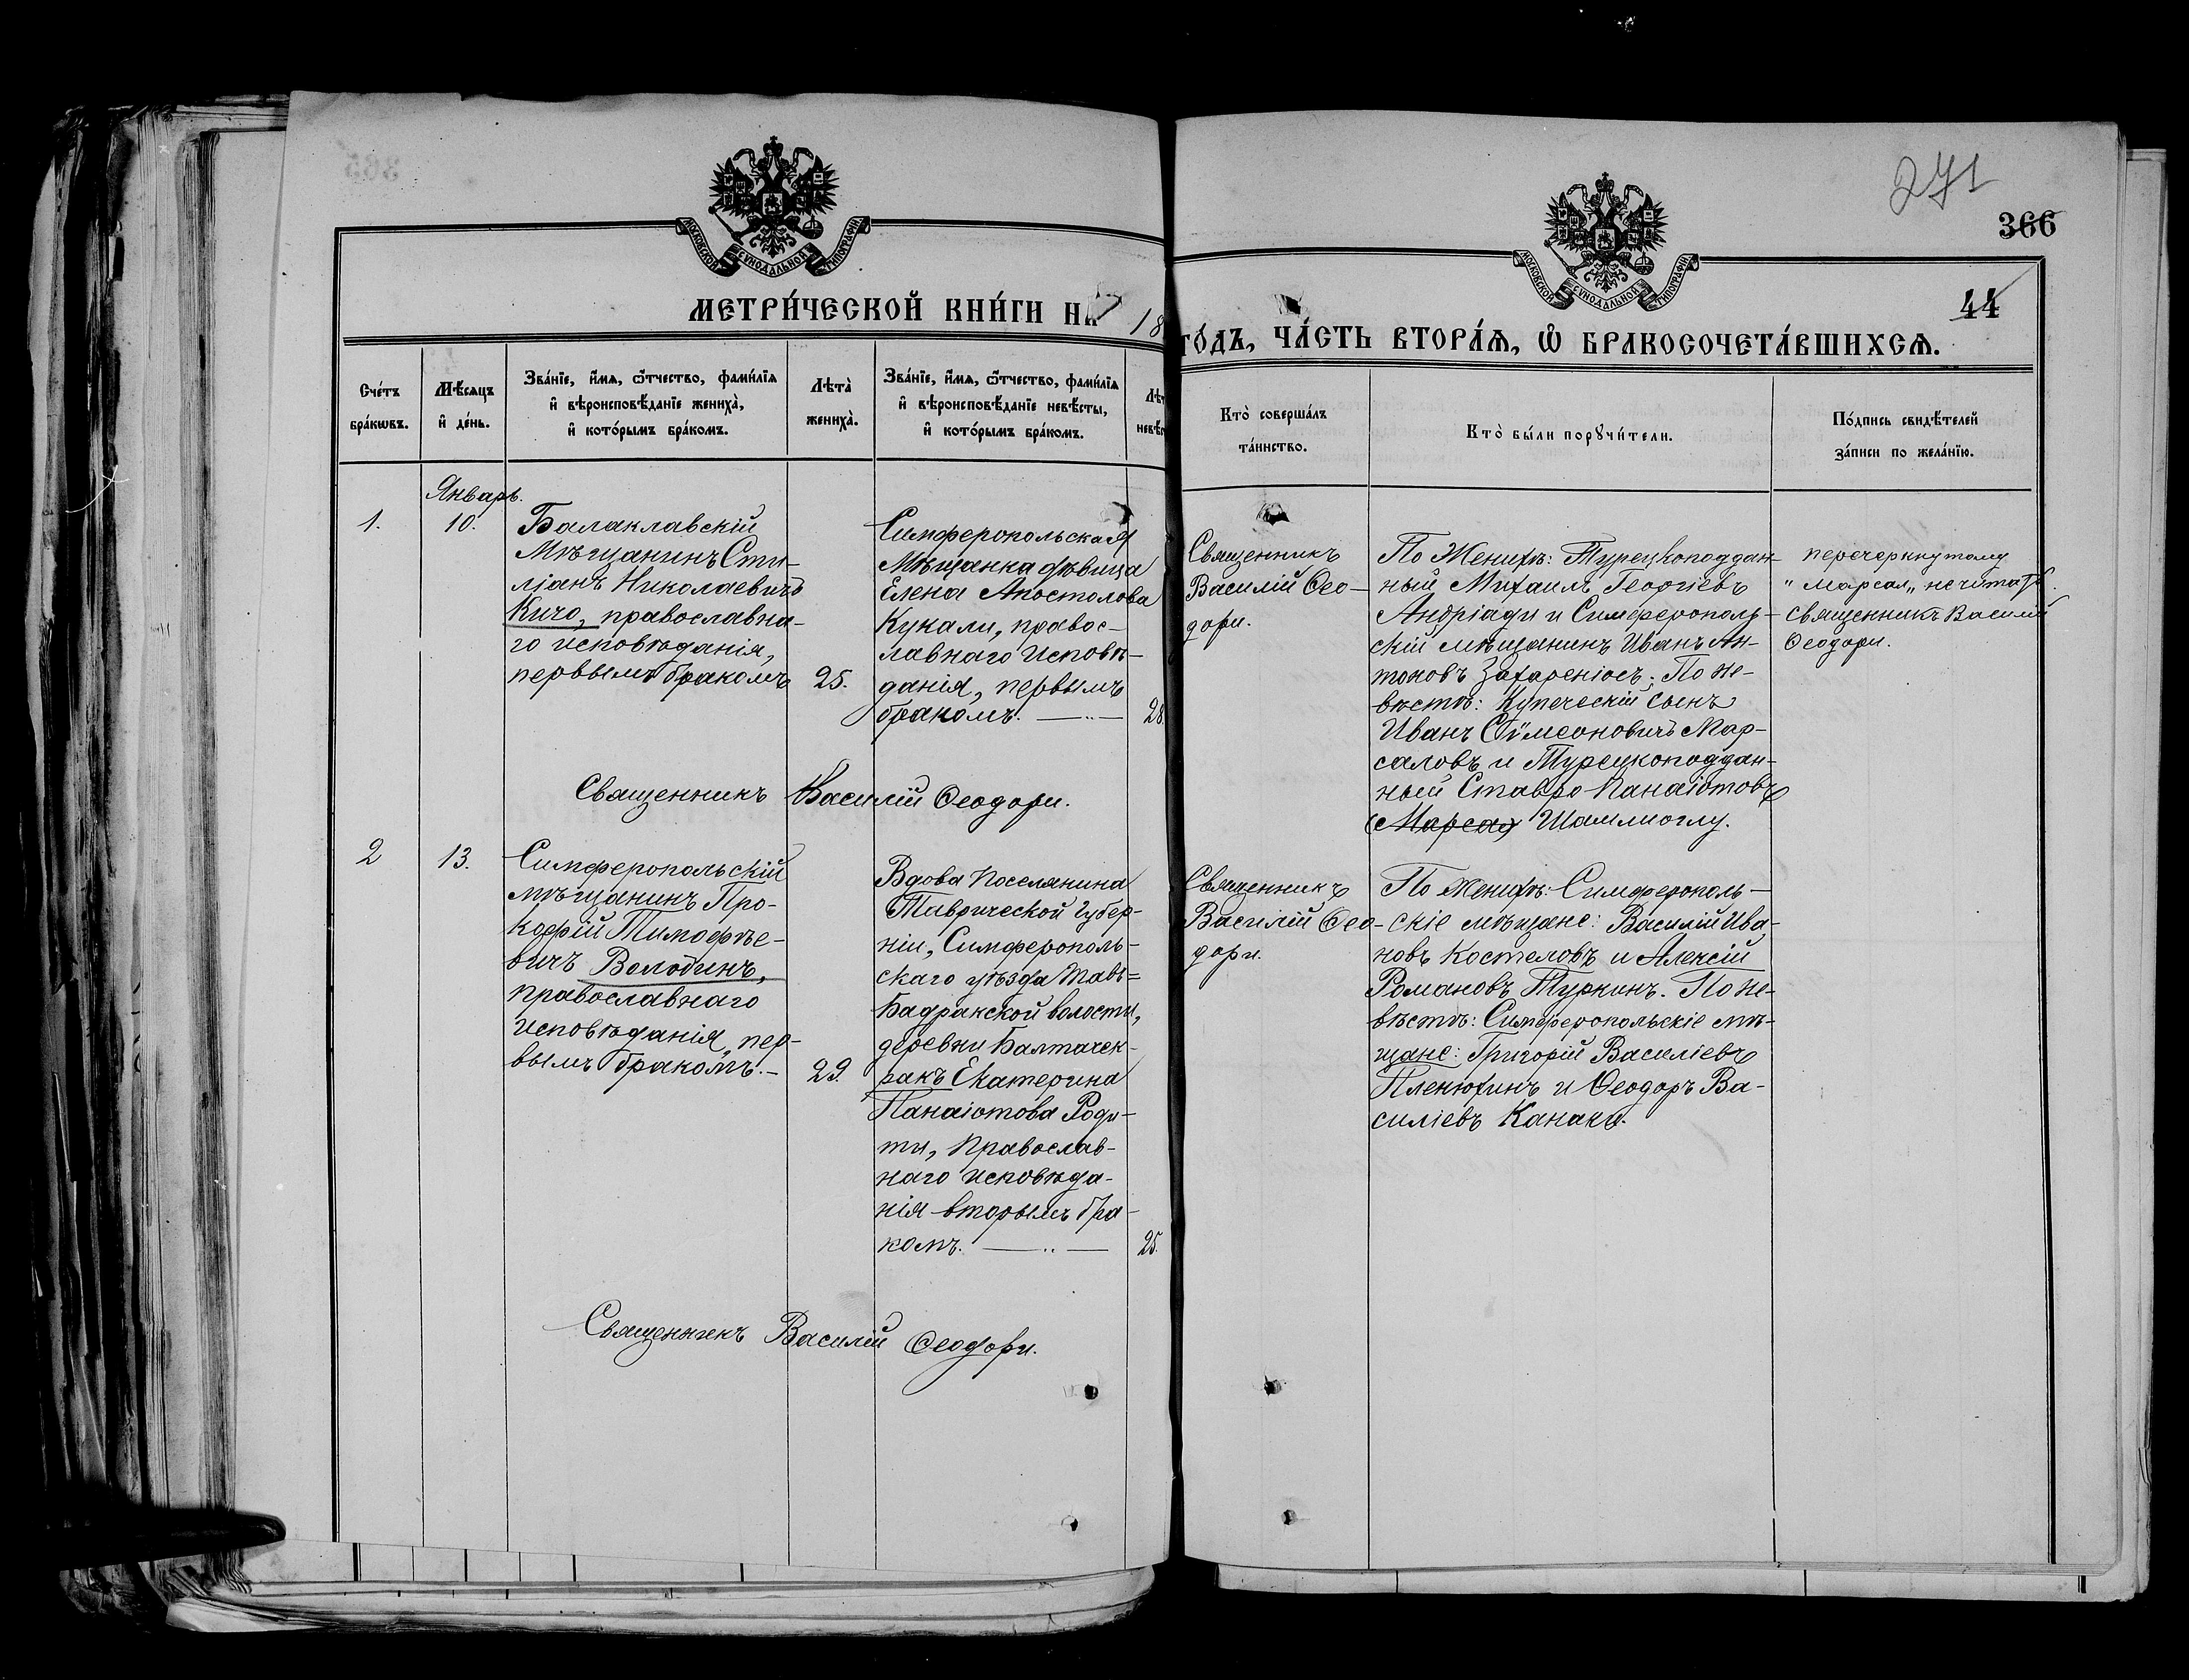 365
МОСКОВСКОЙ СѴНОДАЛЬНОЙ ТИПОГРАФІИ
МЕТРИ́ЧЕСКОЙ КНИ́ГИ НА 18
Сче́тъ бра́кωвъ.
Мѣ́сяцъ и҆ де́нь.
Зва́нїе, и҆́мѧ, ѻ҆́тчество, фами́лїѧ
и҆ вѣроисповѣ́данїе жениха̀,
и҆ кото́рымъ бра́комъ.
Лѣта̀
жениха̀.
Зва́нїе, и҆́мѧ, ѻ҆́тчество, фами́лїѧ
и҆ вѣроисповѣ́данїе невѣ́сты,
и҆ кото́рымъ бра́комъ.
Январь.
1.
10.
Балаклавскій
Мѣщанинъ Сти-
ліанъ Николаевичъ
Кичо, православна-
го исповѣданія,
первымъ бракомъ
25.
Симферопольская
Мѣщанка дѣвица
Елена Апостолова
Кукали, правос-
лавнаго Исповѣ-
данія, первымъ
бракомъ. — „ —
28.
Священникъ Василій Ѳеодори.
2
13.
Симферопольскій
мѣщанинъ Про-
кофій Тимофѣе-
вичъ Волобинъ,
православнаго
исповѣданія, пер-
вымъ бракомъ.-
29.
Вдова Поселянина
Таврической Губер-
ніи, Симферополь-
скаго уѣзда Тавъ=
Бадракской волости,
деревни Балтачек-
ракъ Екатерина
Панаіотова Роди-
ти, Православ-
наго исповѣда-
нія вторымъ бра-
комъ. — „ —
25.
Священникъ Василій Ѳеодори.
271
366
МОСКОВСКОЙ СѴНОДАЛЬНОЙ ТИПОГРАФІИ
44
ГО́ДЪ, ЧА́СТЬ ВТОРА́Ѧ, Ѡ҆ БРАКОСОЧЕТА́ВШИХСѦ.
Кто̀ соверша́лъ
та́инство.
Кто̀ бы́ли порꙋчи́тели.
По́дпись свидѣ́телей
за́писи по жела́нїю.
Священникъ
Василій Ѳео-
дори.
По Женихѣ: Турецкоподдан-
ный Михаилъ Георгіевъ
Андріади и Симферополь-
скій мѣщанинъ Иванъ Ан-
тоновъ Захареніосъ; По не-
вѣстѣ: Купеческій сынъ
Иванъ Сѵмеоновичъ Мар-
саловъ и Турецкоподдан-
ный Ставро Панаіотовъ
(Марсал) Шамлиоглу.
перечеркнутому
" марсал„ не читать.
священникъ Василій
Ѳеодори.
Священникъ
Василій Ѳео-
дори.
По Женихѣ: Симферополь-
скіе мѣщане: Василій Ива-
новъ Костеловъ и Алексій
Романовъ Туркинъ. По не-
вѣстѣ: Симферопольскіе мѣ-
щане: Григорій Василіевъ
Пленюхинъ и Ѳеодоръ Ва-
силіевъ Канаки.